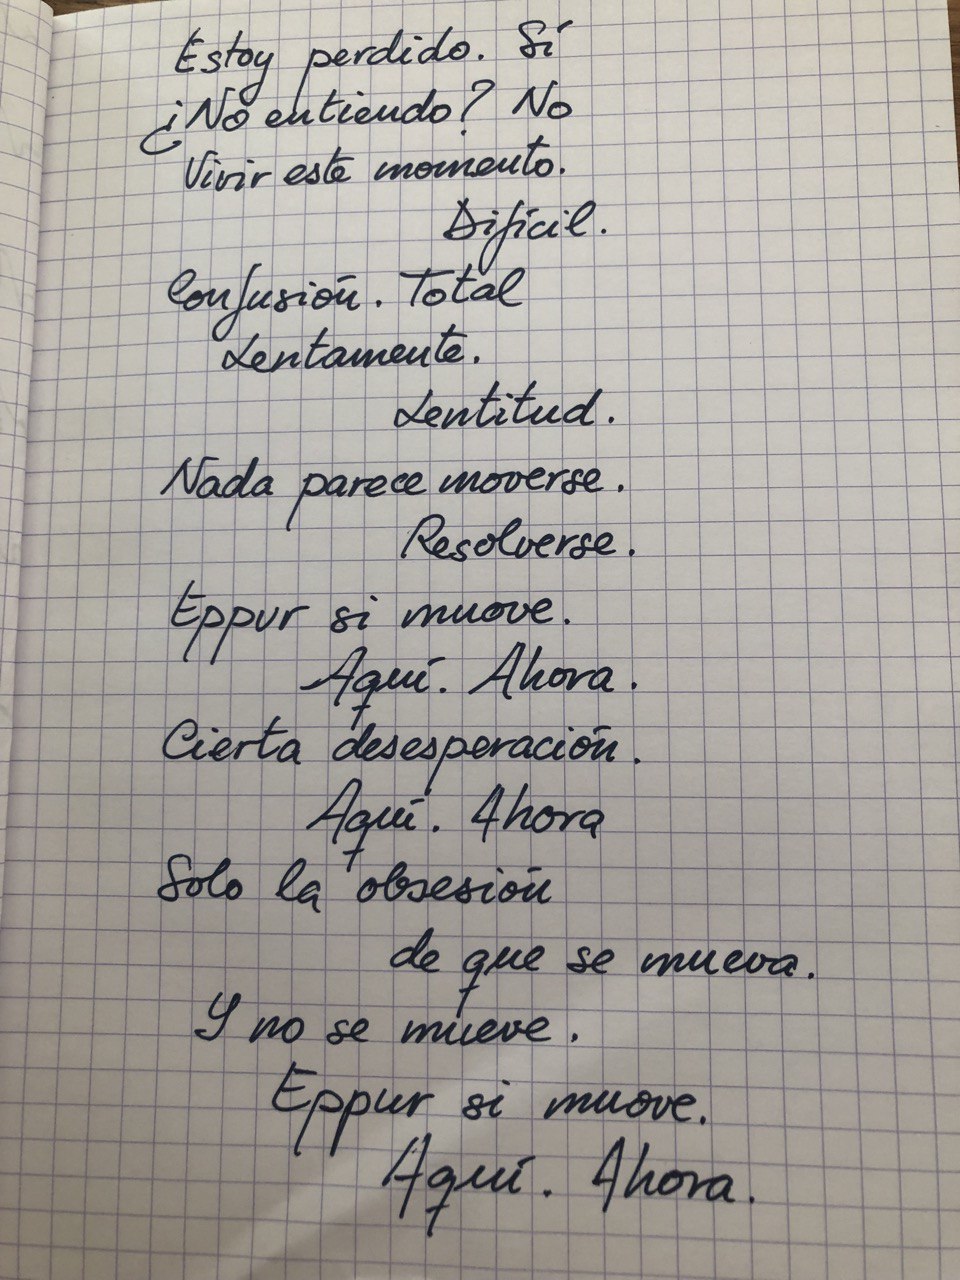 Estoy perdido. Sí
¿No entiendo? No
Vivir este momento.
Difícil.
Confusión. Total
Lentamente.
Lentitud.
Nada parece moverse.
Resolverse.
Eppur si muove.
Aquí. Ahora.
Cierta desesperación.
Aquí. Ahora
Solo la obsesión
de que se mueva.
Y no se mueve.
Eppur si muove.
Aquí. Ahora.